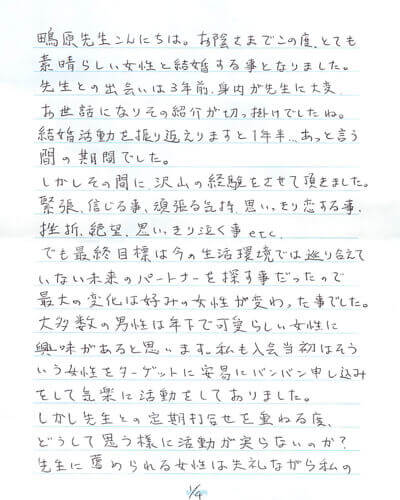 鴫原先生こんにちは。お陰さまでこの度、とても
素晴らしい女性と結婚する事となりました。
先生との出会いは3年前、身内が先生に大変
お世話になりその紹介が切っ掛けでしたね。
結婚活動を振り返えりますと1年半…あっと言う
間の期間でした。
しかしその間に沢山の経験をさせて頂きました。
緊張、信じる事、頑張る気持、思いっきり恋する事、
挫折、絶望、思いっきり泣く事etc.
でも最終目標は今の生活環境では巡り合えて
いない未来のパートナーを探す事だったので
最大の変化は好みの女性が変わった事でした。
大多数の男性は年下で可愛らしい女性に
興味があると思います。私も入会当初はそう
いう女性をターゲットに安易にバンバン申し込み
をして気楽に活動をしておりました。
しかし先生との定期打合せを重ねる度、
どうして思う様に活動が実らないのか?
先生に薦められる女性は失礼ながら私の
1/4